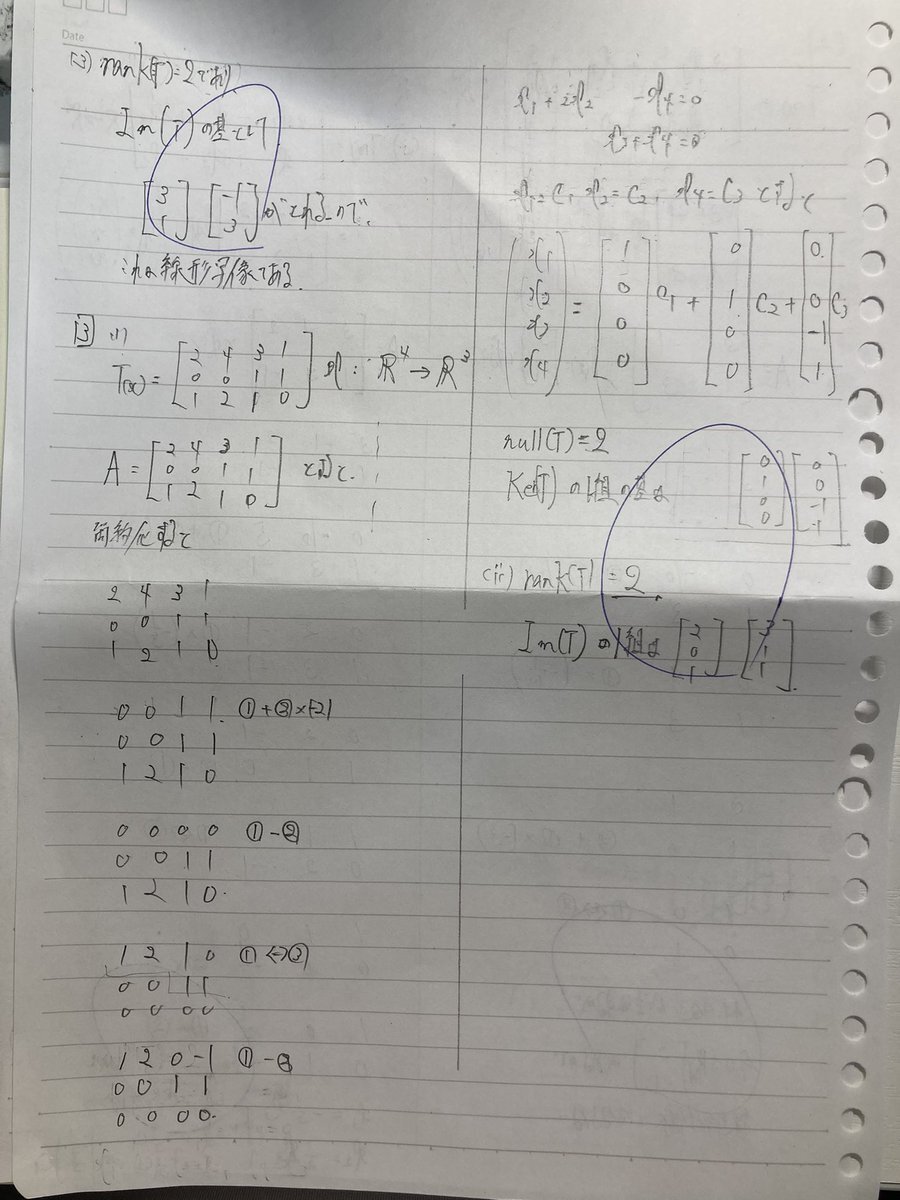 Date
(3) rank(T)=2であり
Im(T)の基として
[3 1] [-1 3] がとれるので、
これは線形写像である.
[3] (i)
T(x) = [2 4 3 1
0 0 1 1
1 2 1 0] x : R⁴→R³
A = [2 4 3 1
0 0 1 1
1 2 1 0] とすると.
簡約化すると
2 4 3 1
0 0 1 1
1 2 1 0
0 0 1 1 ①+③×(-2)
0 0 1 1
1 2 1 0
0 0 0 0 ①-②
0 0 1 1
1 2 1 0.
1 2 1 0 ①↔③
0 0 1 1
0 0 0 0
1 2 0 -1 ①-②
0 0 1 1
0 0 0 0.
x₁ + 2x₂ - x₄ = 0
x₃ + x₄ = 0
x₁ = C₁ x₂ = C₂, x₄ = C₃ とすると
(x1 x2 x3 x4) = [1 0 0 0] C₁ + [0 1 0 0] C₂ + [0 0 -1 1] C₃
null(T) = 2
Ker(T) の1組の基は [0 1 0 0] [0 0 -1 -1]
(ii) rank(T) = 2
Im(T) の1組は [2 0 1] [3 1 1].